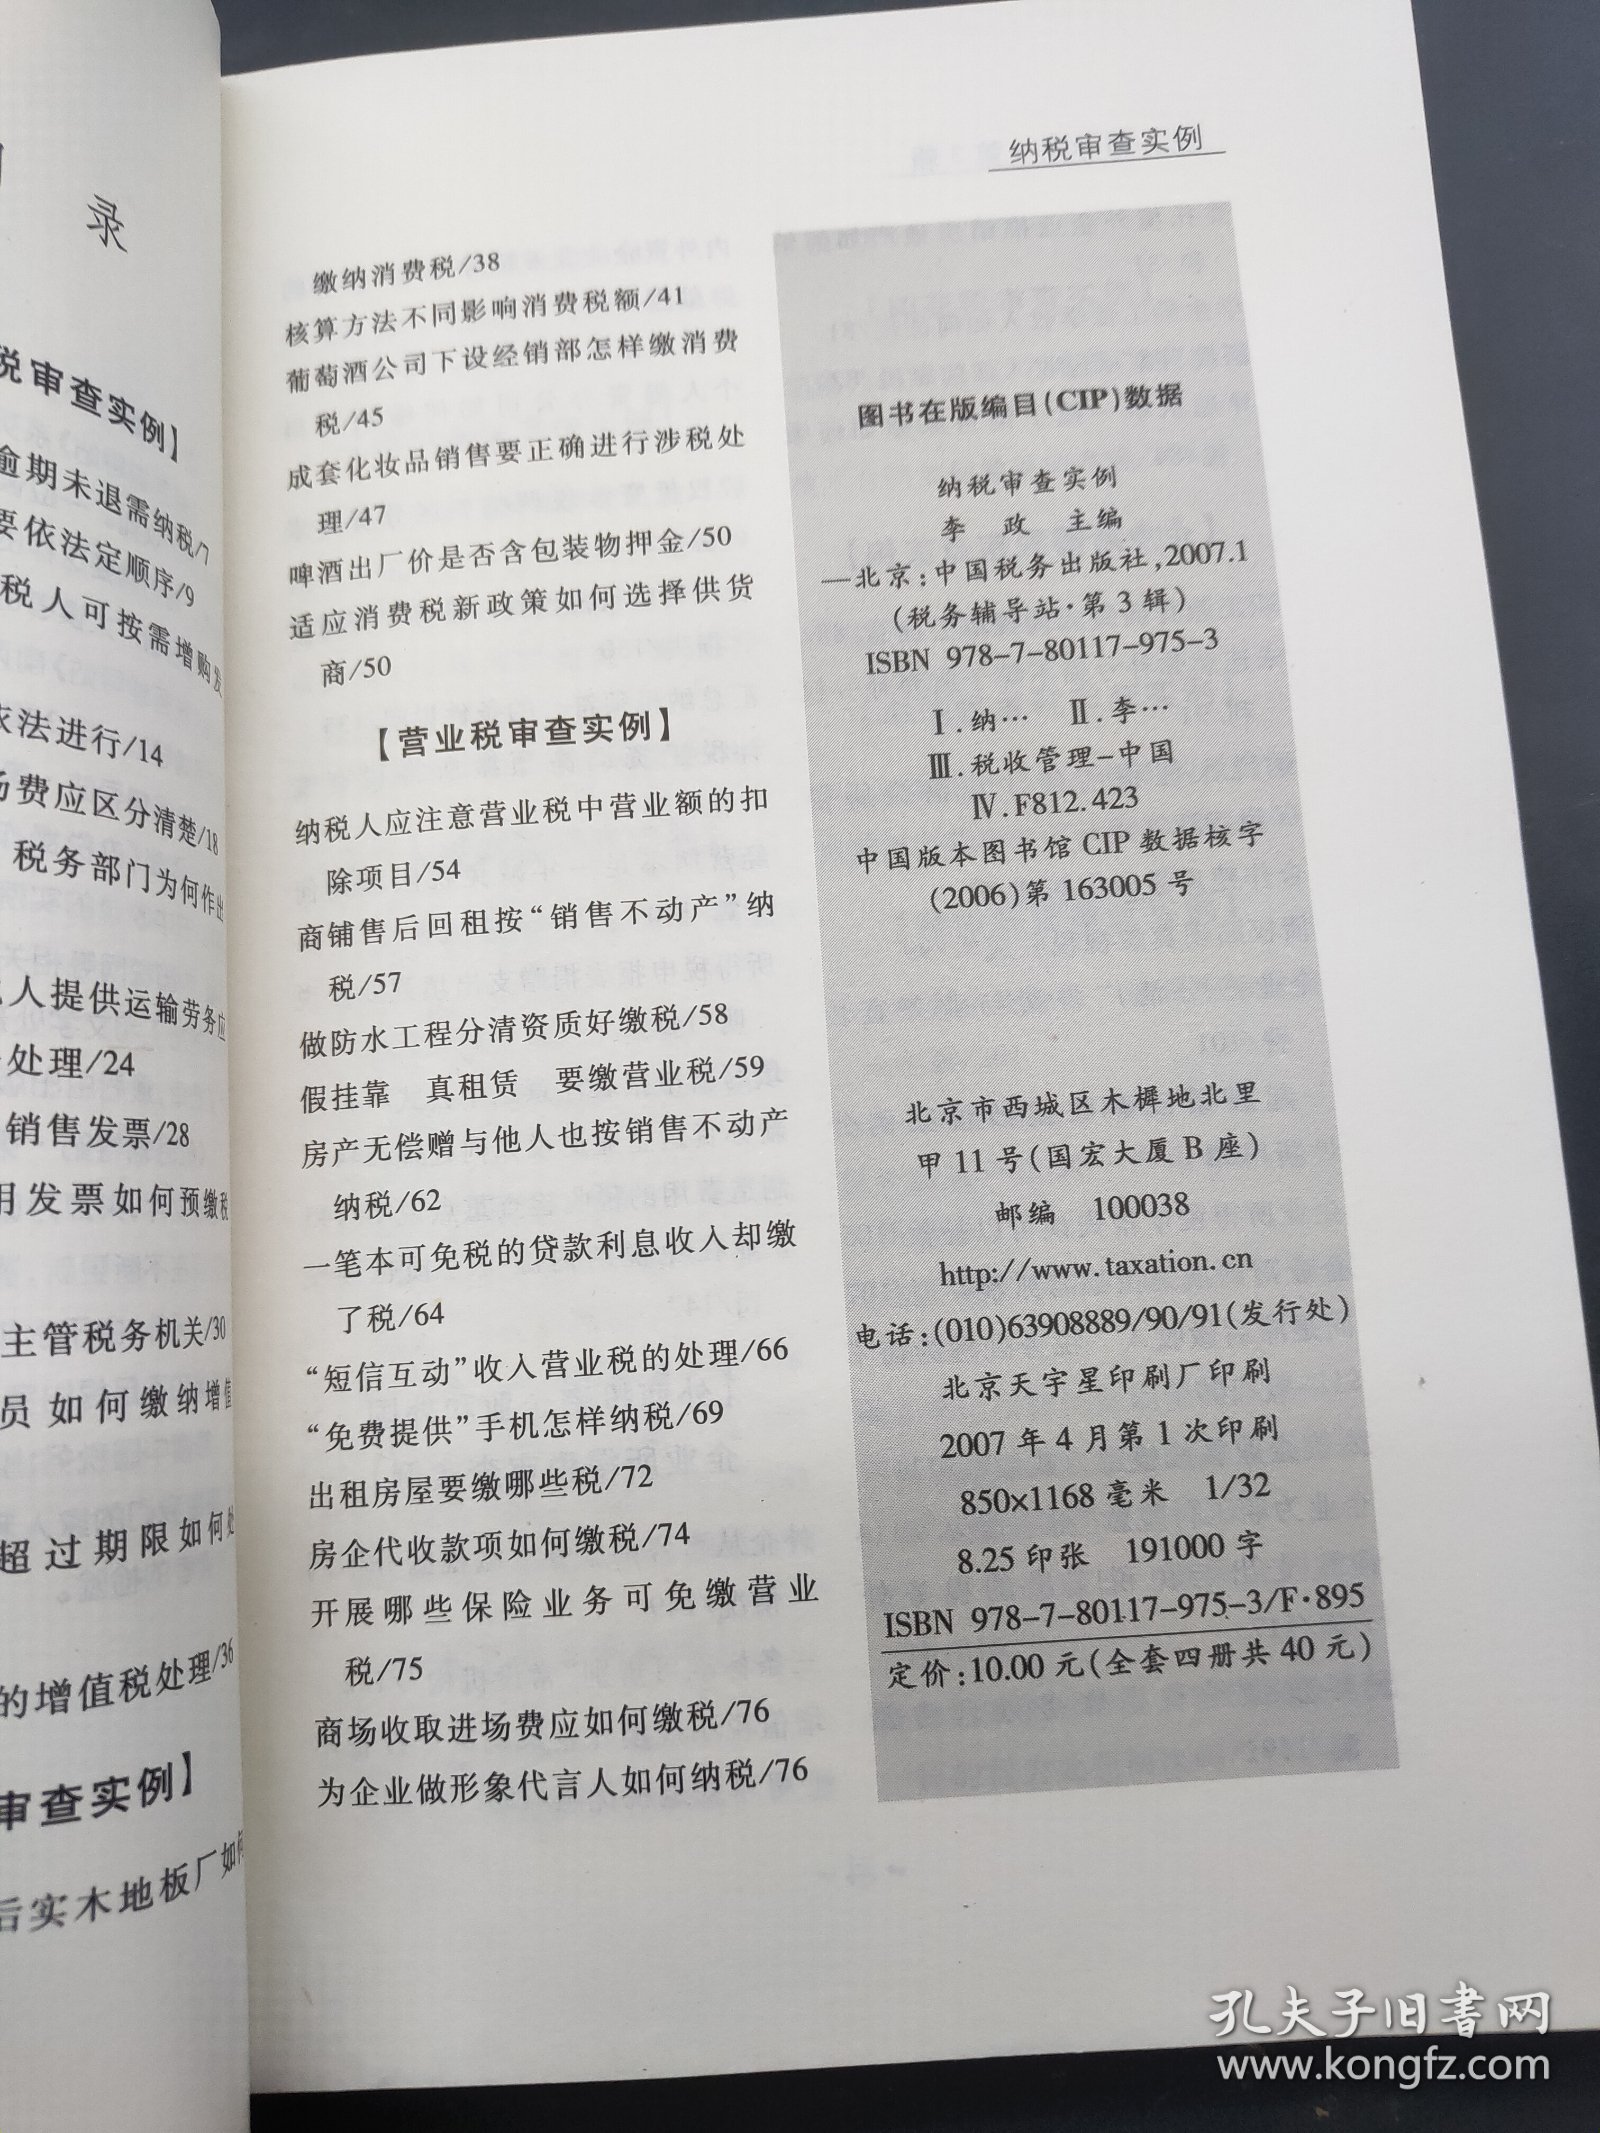 录
税审查实例】
逾期未退需纳税/7
要依法定顺序/9
税人可按需增购发
依法进行/14
场费应区分清楚/18
税务部门为何作出
人提供运输劳务应
处理/24
销售发票/28
用发票如何预缴税
主管税务机关/30
员如何缴纳增值
超过期限如何处
的增值税处理/36
审查实例】
后实木地板厂如何
纳税审查实例
缴纳消费税/38
核算方法不同影响消费税额/41
葡萄酒公司下设经销部怎样缴消费
税/45
成套化妆品销售要正确进行涉税处
理/47
啤酒出厂价是否含包装物押金/50
适应消费税新政策如何选择供货
商/50
【营业税审查实例】
纳税人应注意营业税中营业额的扣
除项目/54
商铺售后回租按“销售不动产”纳
税/57
做防水工程分清资质好缴税/58
假挂靠 真租赁 要缴营业税/59
房产无偿赠与他人也按销售不动产
纳税/62
一笔本可免税的贷款利息收入却缴
了税/64
“短信互动”收入营业税的处理/66
“免费提供”手机怎样纳税/69
出租房屋要缴哪些税/72
房企代收款项如何缴税/74
开展哪些保险业务可免缴营业
税/75
商场收取进场费应如何缴税/76
为企业做形象代言人如何纳税/76
图书在版编目(CIP)数据
纳税审查实例
李 政 主编
—北京:中国税务出版社,2007.1
(税务辅导站·第3辑)
ISBN 978-7-80117-975-3
Ⅰ.纳… Ⅱ.李…
Ⅲ.税收管理-中国
Ⅳ.F812.423
中国版本图书馆CIP数据核字
(2006)第163005号
北京市西城区木樨地北里
甲11号(国宏大厦B座)
邮编 100038
http://www.taxation.cn
电话:(010)63908889/90/91(发行处)
北京天宇星印刷厂印刷
2007年4月第1次印刷
850×1168毫米 1/32
8.25印张 191000字
ISBN 978-7-80117-975-3/F·895
定价:10.00元(全套四册共40元)
孔夫子旧书网
www.kongfz.com